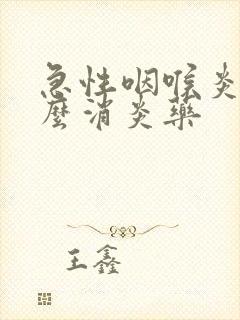 急性咽喉炎
麼消炎藥
王鑫